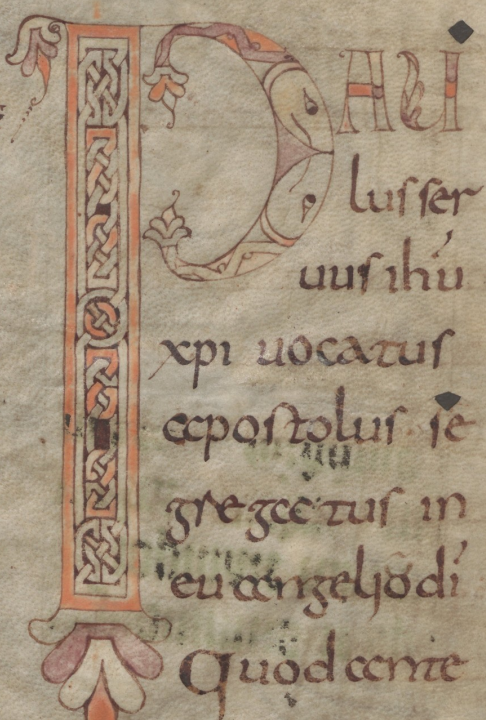 PAU
lus ser
uus ihu
xpi uocatus
apostolus se
gregatus in
euangelio di
Quod ante